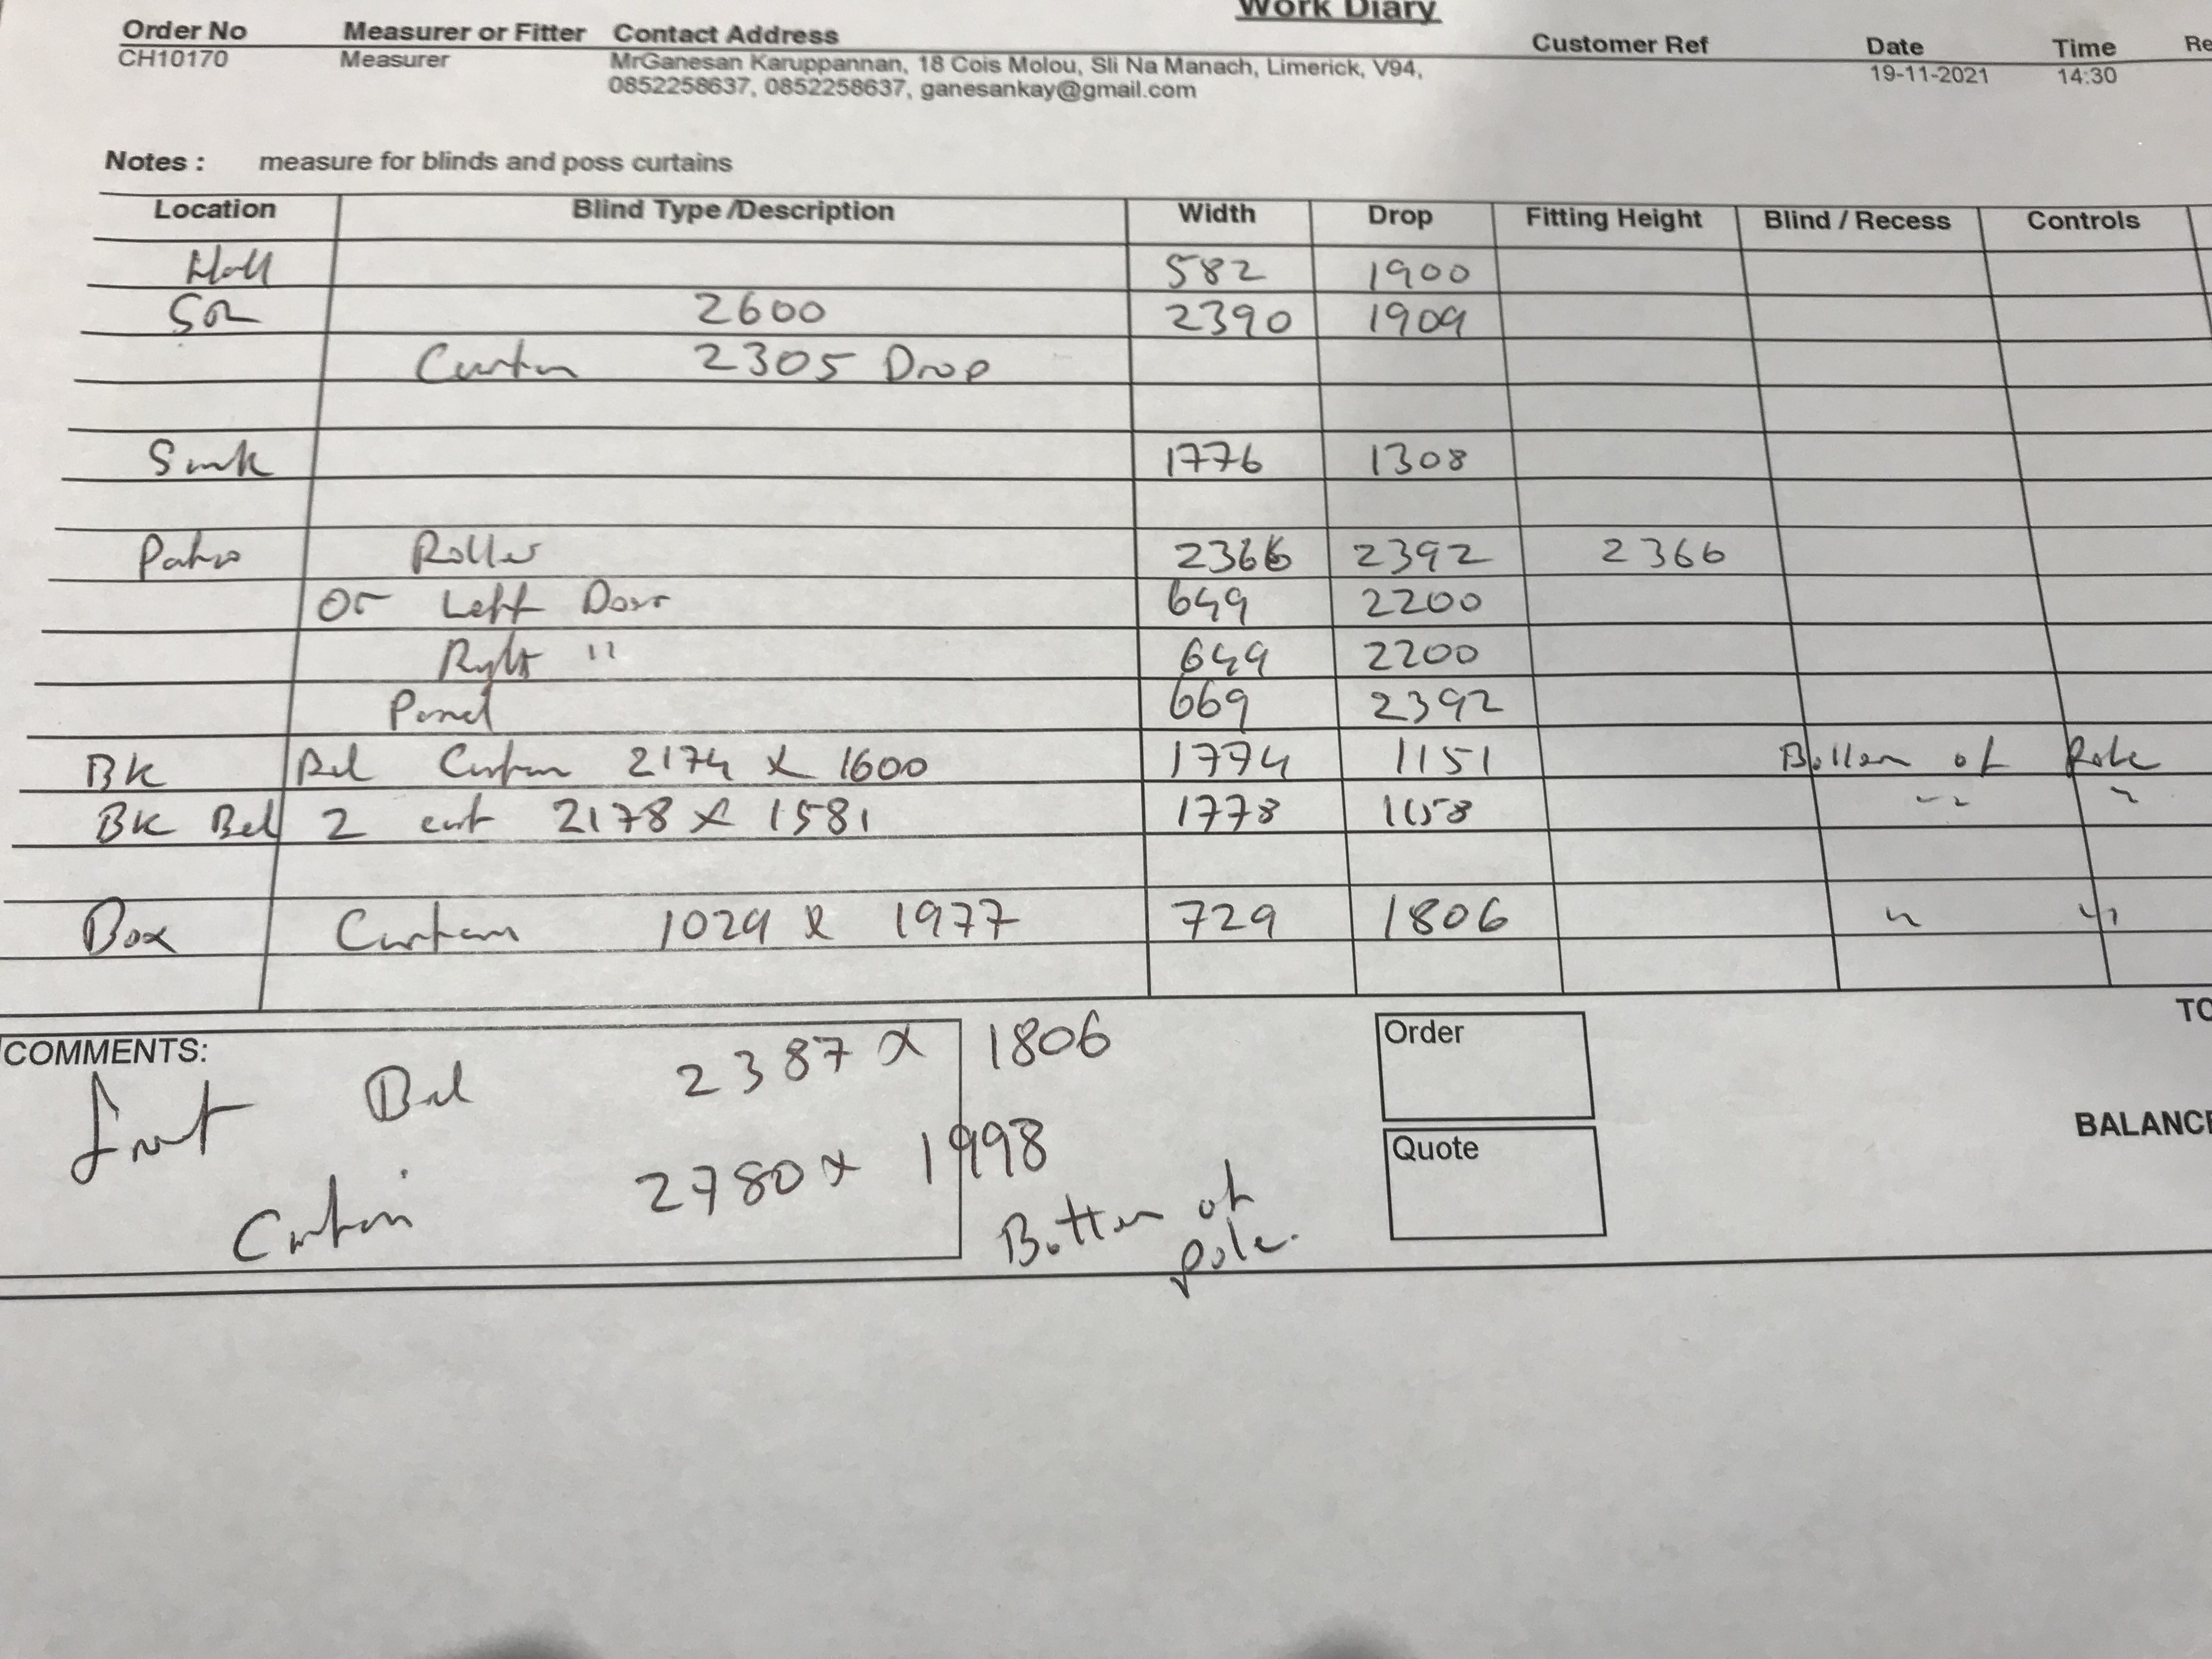 Work Diary
Order No Measurer or Fitter Contact Address Customer Ref Date Time Re
CH10170 Measurer MrGanesan Karuppannan, 18 Cois Molou, Sli Na Manach, Limerick, V94, 19-11-2021 14:30
0852258637, 0852258637, ganesankay@gmail.com
Notes : measure for blinds and poss curtains
Location Blind Type /Description Width Drop Fitting Height Blind / Recess Controls
Hall 582 1900
2600 2390 1909
Curtain 2305 Drop
Sink 1776 1308
Patio Roller 2366 2392 2366
Or Left Door 649 2200
Right " 649 2200
Panel 669 2392
Bk Bed Curtain 2174 x 1600 1774 1151 Bottom of Pole
Bk Bed 2 curt 2178 x 1581 1778 1158 " "
Box Curtain 1029 x 1977 729 1806 " "
TO
COMMENTS: Order
Front Bed 2387 x 1806
BALANCE
Quote
Curtain 2780 x 1998
Bottom of
pole.